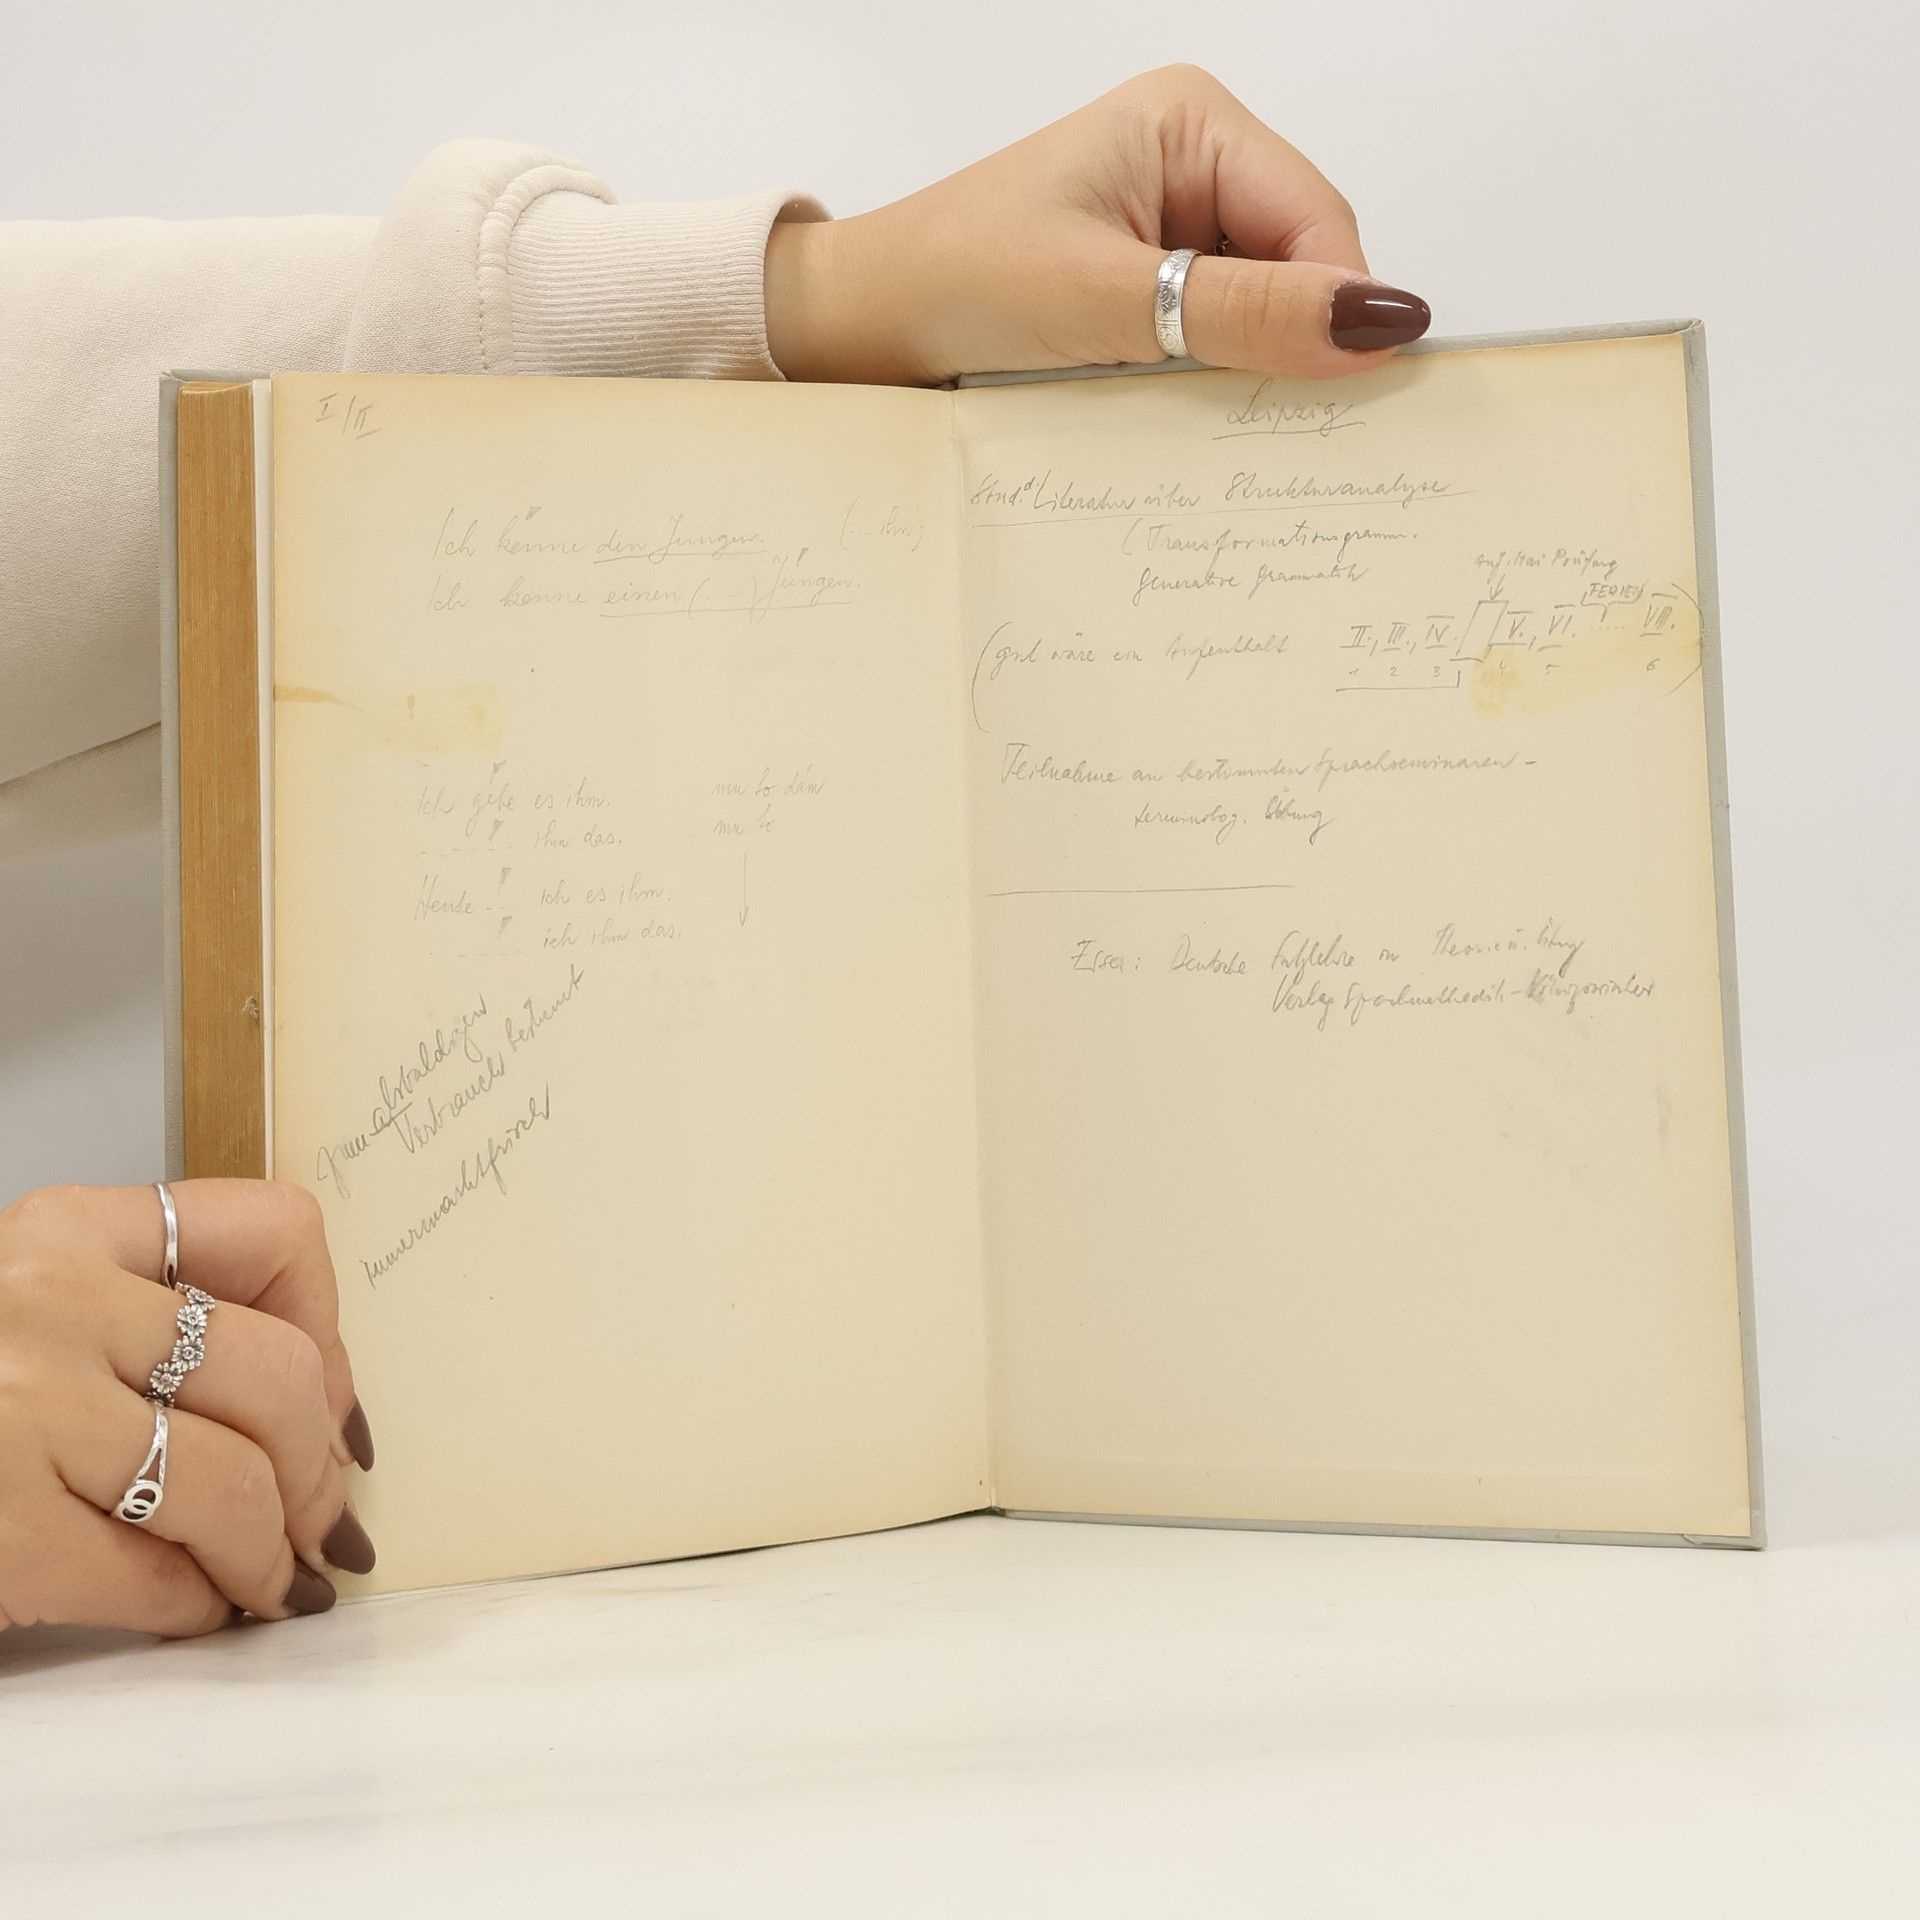 I/II
Ich kenne den Jungen. (... ihn)
Ich kenne einen (....) Jungen.
Ich gebe es ihm. mu to dám
------- ihm das. mu to
Heute -- ich es ihm.
------- ich ihm das.
zum alsbaldigen
Verbrauch bestimmt
immermarktfrisch
Leipzig
Stud. d. Literatur über Strukturanalyse
(Transformationsgramm.
Generative Grammatik
Anf. Mai Prüfung
FERIEN
(gut wäre ein Aufenthalt II., III., IV. V., VI. .... VII.)
1 2 3 4 5 6
Teilnahme an bestimmten Sprachseminaren -
terminolog. Übung
Esser: Deutsche Satzlehre in Theorie u. Übung
Verlag Sprachmethodik - Königswinter